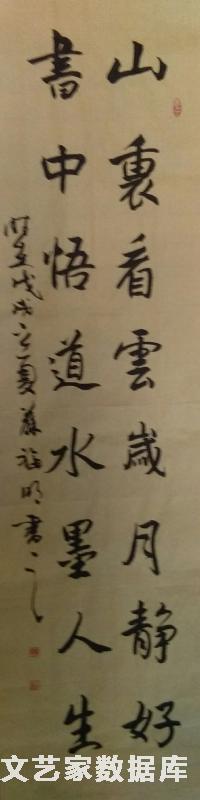 山裏看雲歲月静好
書中悟道水墨人生
時在戊戌之夏蘇福明書
文艺家数据库